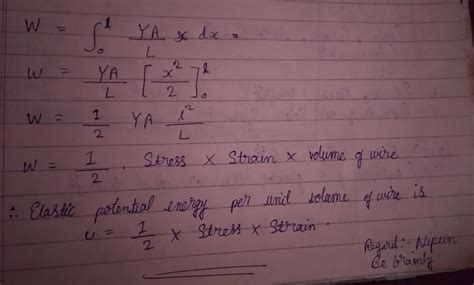 W = ∫₀ˡ YA/L x dx =
W = YA/L [x²/2]₀ˡ
W = 1/2 YA l²/L
W = 1/2 . Stress × Strain × volume of wire
∴ Elastic potential energy per unit volume of wire is
u = 1/2 × Stress × Strain .
Regard:- Nipun
Be brainly